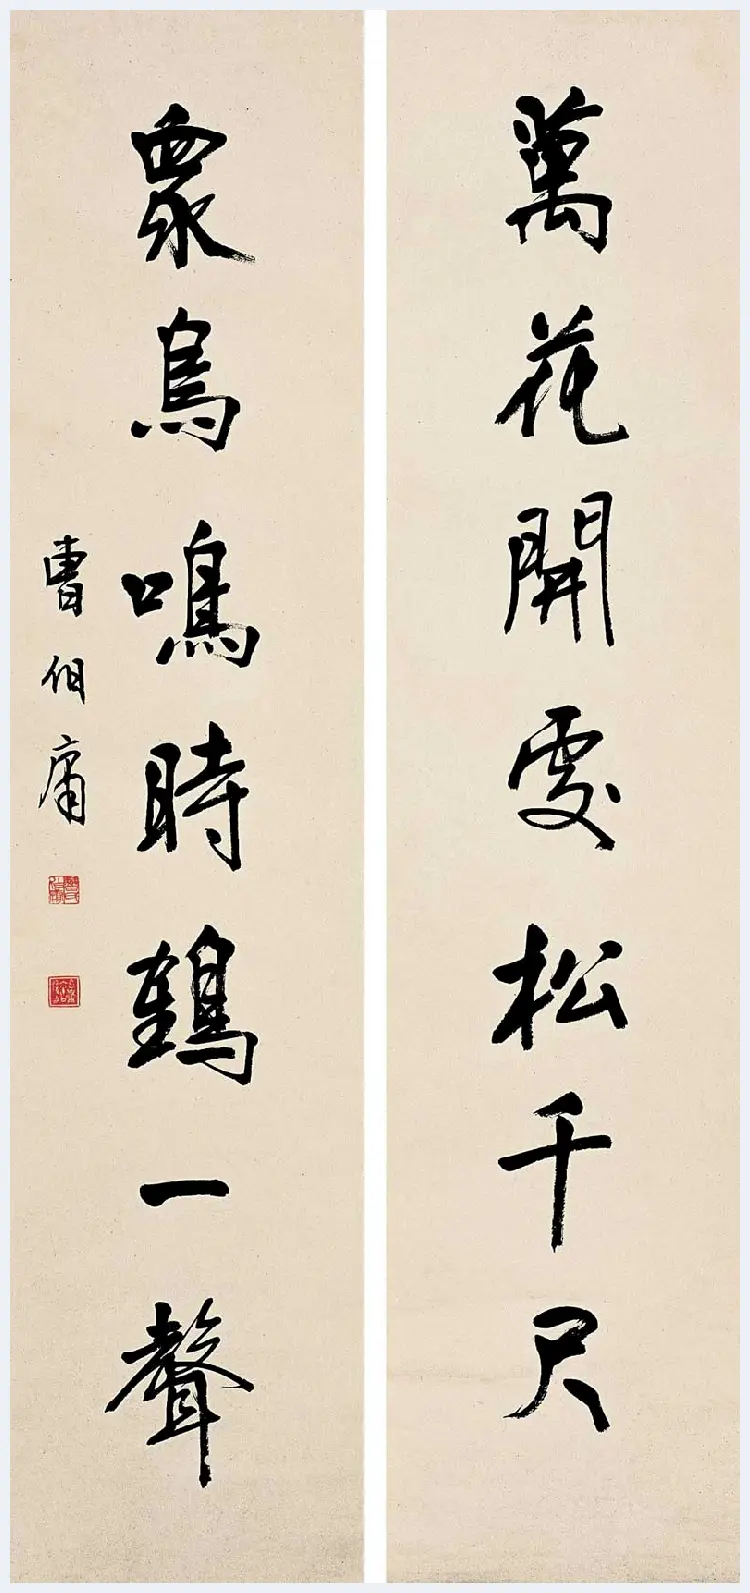 萬花開處松千尺
衆鳥鳴時鶴一聲
曹伯庸